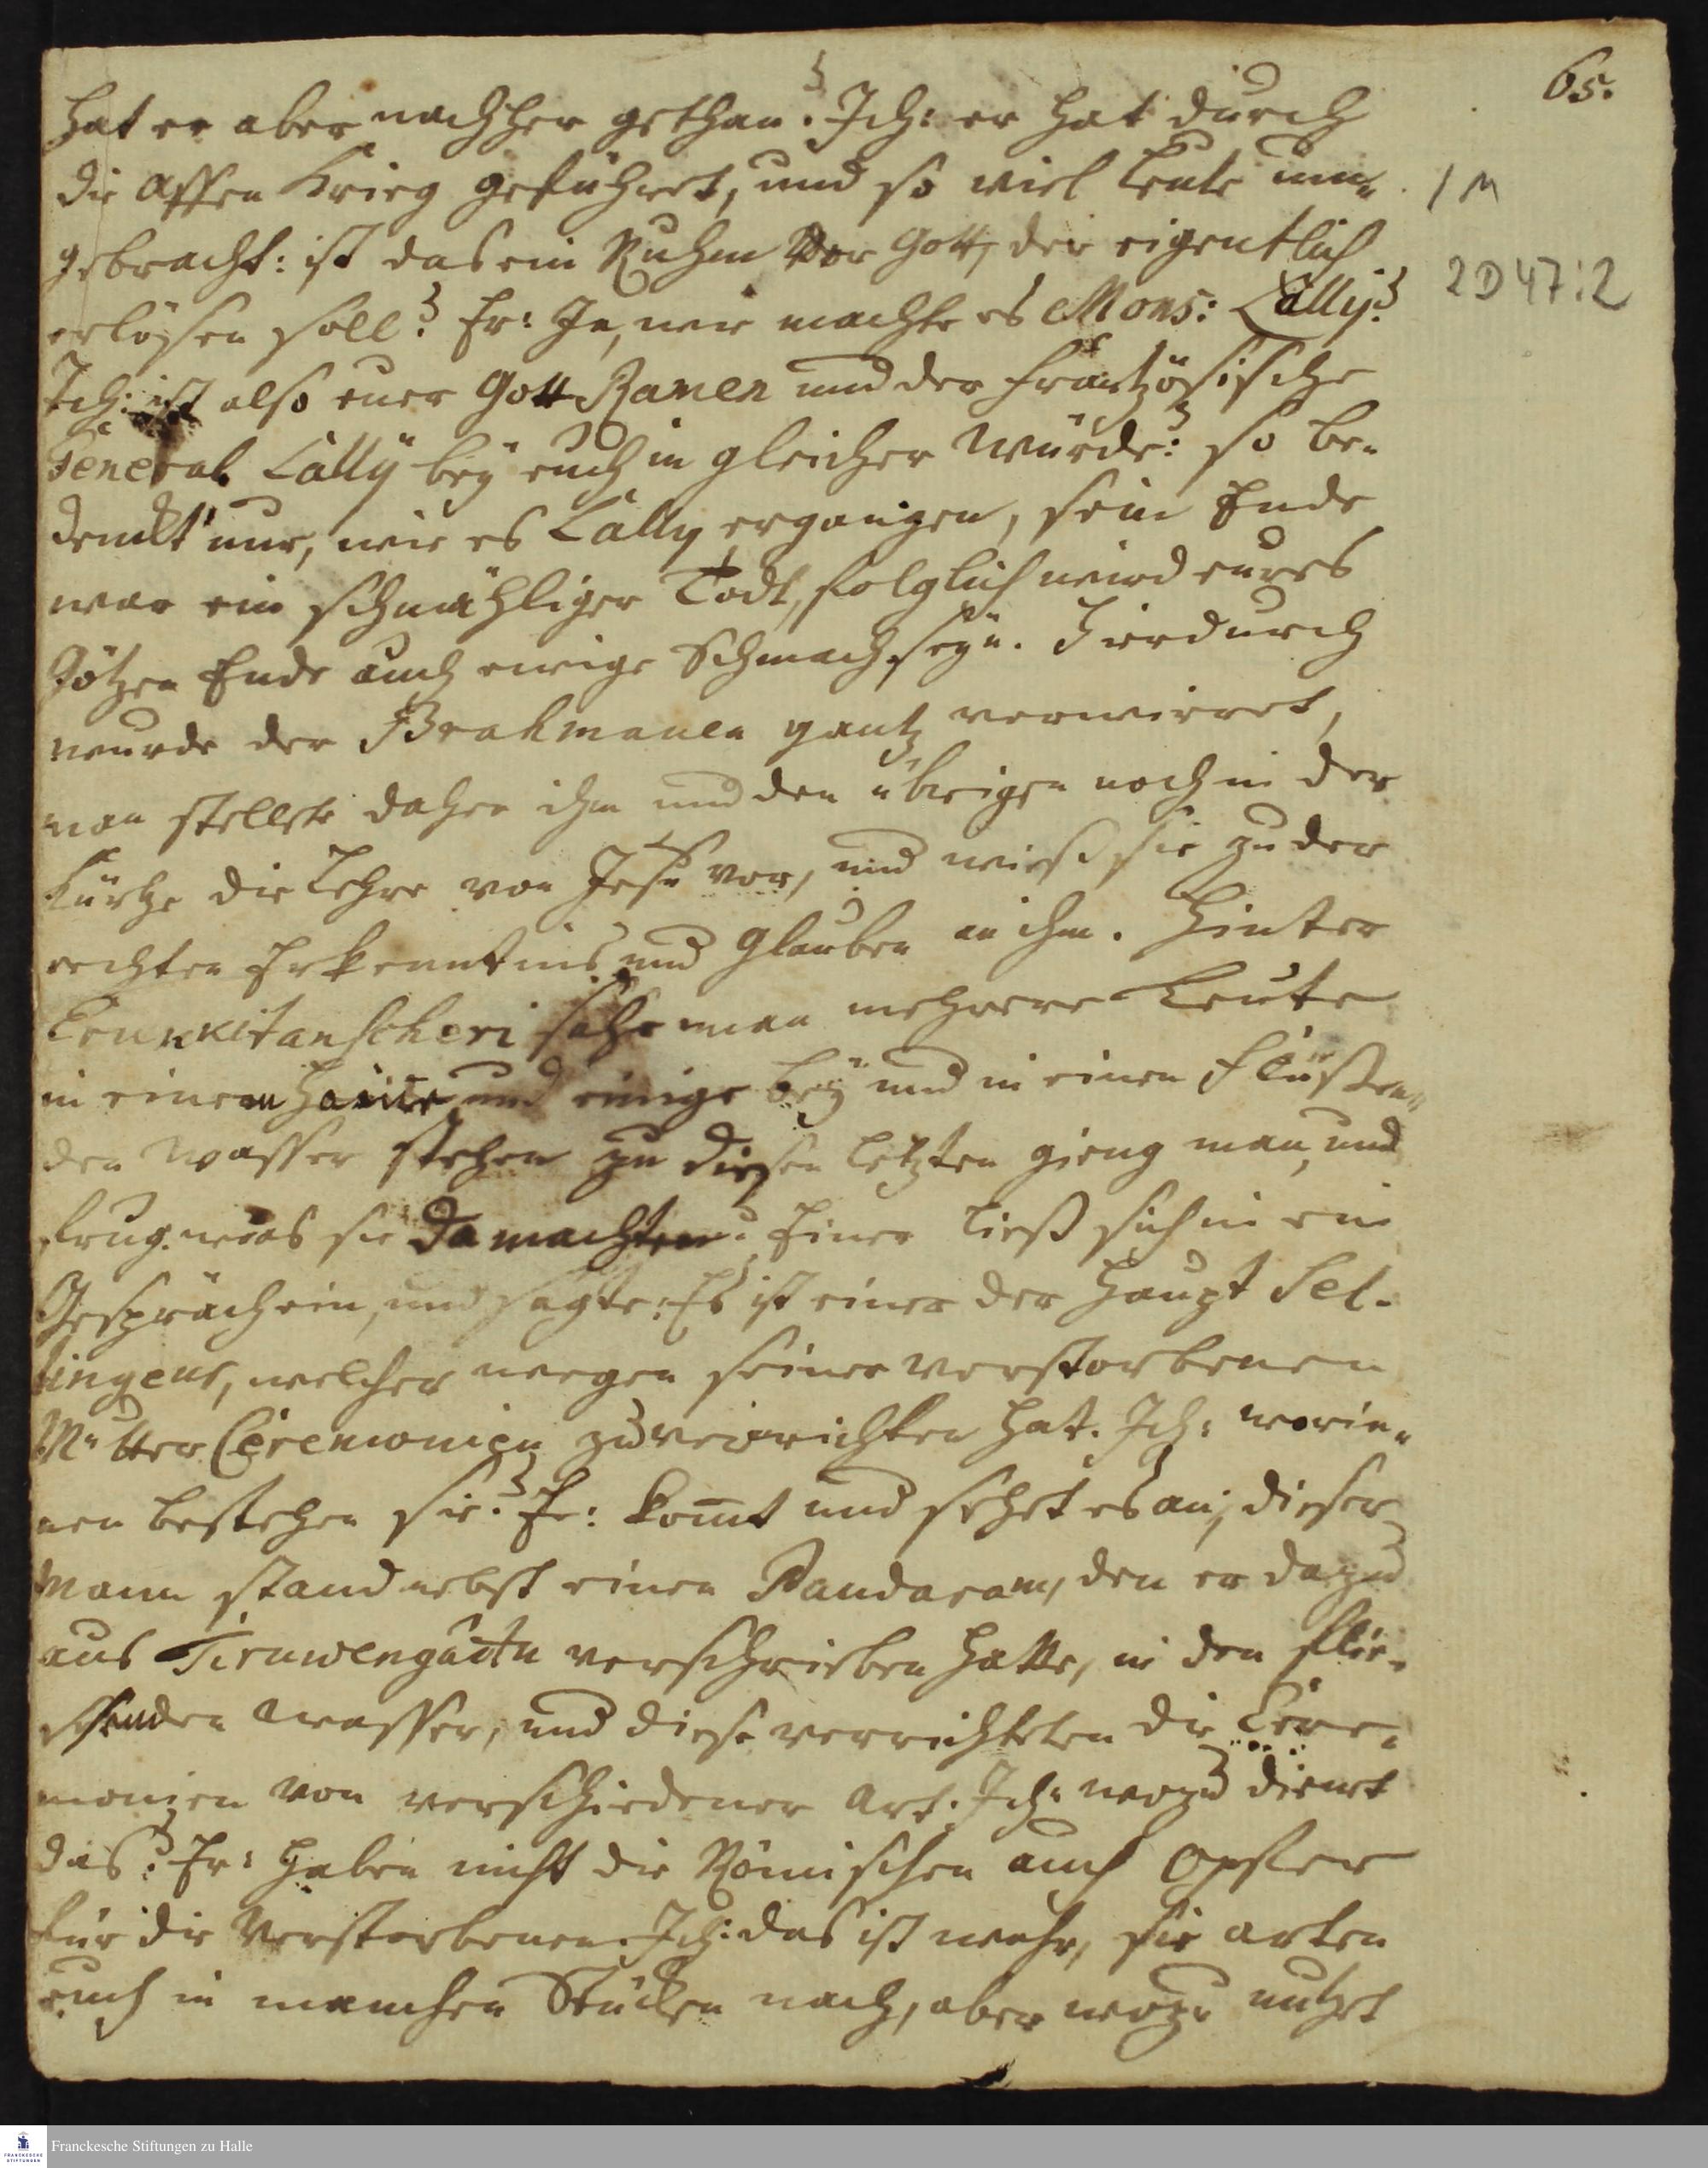 65.
hat er aber nachher gethan? Ich: er hat durch
die Affen Krieg geführet, und so viel Leute um-
gebracht: ist das ein Ruhm vor Gott, der eigentlich
erlösen soll? Er: Ja, wie machte es Mons: Lally?
Ich: ist also euer Gott Ramen und der Frantzösische
General Lally bey euch in gleicher Würde? so be-
denckt nur, wie es Lally ergangen, sein Ende
war ein schmähliger Todt, folglich wird eures
Götzen Ende auch ewige Schmach seyn. Hierdurch
wurde der Brahmanen gantz verwirret,
man stellete daher ihm und den übrigen noch in der
Kürtze die Lehre von Jesu vor, und wieß sie zu der
rechten Erkenntnis und Glauben an ihm. Hinter
sahe man mehrere Leute
in einem Haine und einige bey und in einen Flüßen-
den Wasser stehen zu diesen letzten gieng man, und
frug was sie da machten? Einer ließ sich in ein
Gespräch ein, und sagte: Es ist einer der Haupt Set-
tingens, welcher wegen seiner verstorbenen
Mutter Ceremonien zu verrichten hat. Ich: worin-
nen bestehen sie? Er: komt und sehet es an, dieser
Mann stand nebst einen Pandaram, den er dazu
aus Tiruwengadu verschrieben hatte, in den flie-
ssenden Wasser, und diese verrichteten die Cere-
monien von verschiedener Art. Ich: wozu dienet
das? Er: haben nicht die Römischen auch Opfer
für die Verstorbenen. Ich: das ist wahr, sie arten
euch in manchen Stücken nach, aber wozu nutzet
1 M
2 D 47:2
Franckesche Stiftungen zu Halle
FRANCKESCHE
STIFTUNGEN